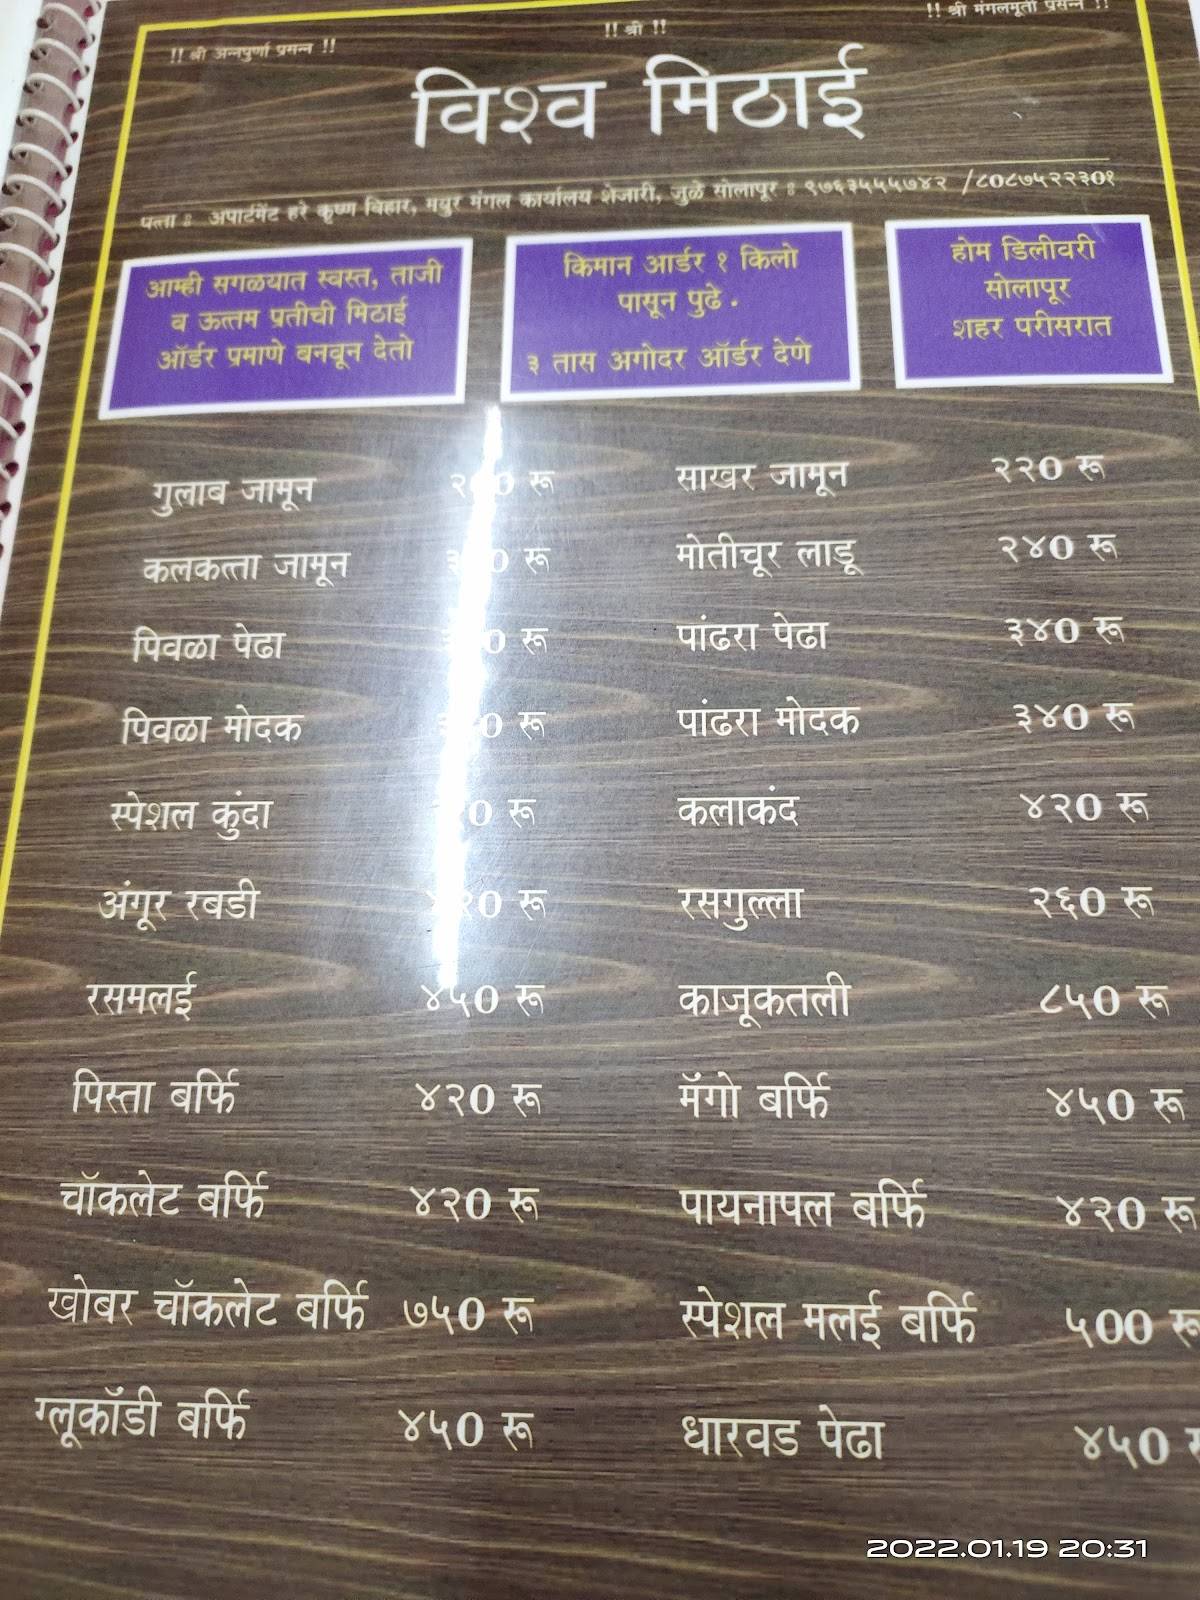 !! श्री अन्नपुर्णा प्रसन्न !!
!! श्री !!
!! श्री मंगलमूर्ती प्रसन्न !!
विश्व मिठाई
पत्ता : अपार्टमेंट हरे कृष्ण विहार, मयुर मंगल कार्यालय शेजारी, जुळे सोलापूर : ९७६३५५५७४२ /८०८७५२२३०१
आम्ही सगळयात स्वस्त, ताजी
व ऊत्तम प्रतीची मिठाई
ऑर्डर प्रमाणे बनवून देतो
किमान आर्डर १ किलो
पासून पुढे .
३ तास अगोदर ऑर्डर देणे
होम डिलीवरी
सोलापूर
शहर परीसरात
गुलाब जामून रू साखर जामून २२० रू
कलकत्ता जामून रू मोतीचूर लाडू २४० रू
पिवळा पेढा रू पांढरा पेढा ३४० रू
पिवळा मोदक रू पांढरा मोदक ३४० रू
स्पेशल कुंदा रू कलाकंद ४२० रू
अंगूर रबडी रू रसगुल्ला २६० रू
रसमलई ४५० रू काजूकतली ८५० रू
पिस्ता बर्फि ४२० रू मॅंगो बर्फि ४५० रू
चॉकलेट बर्फि ४२० रू पायनापल बर्फि ४२० रू
खोबर चॉकलेट बर्फि ७५० रू स्पेशल मलई बर्फि ५०० रू
ग्लूकॉडी बर्फि ४५० रू धारवड पेढा ४५०
2022.01.19 20:31